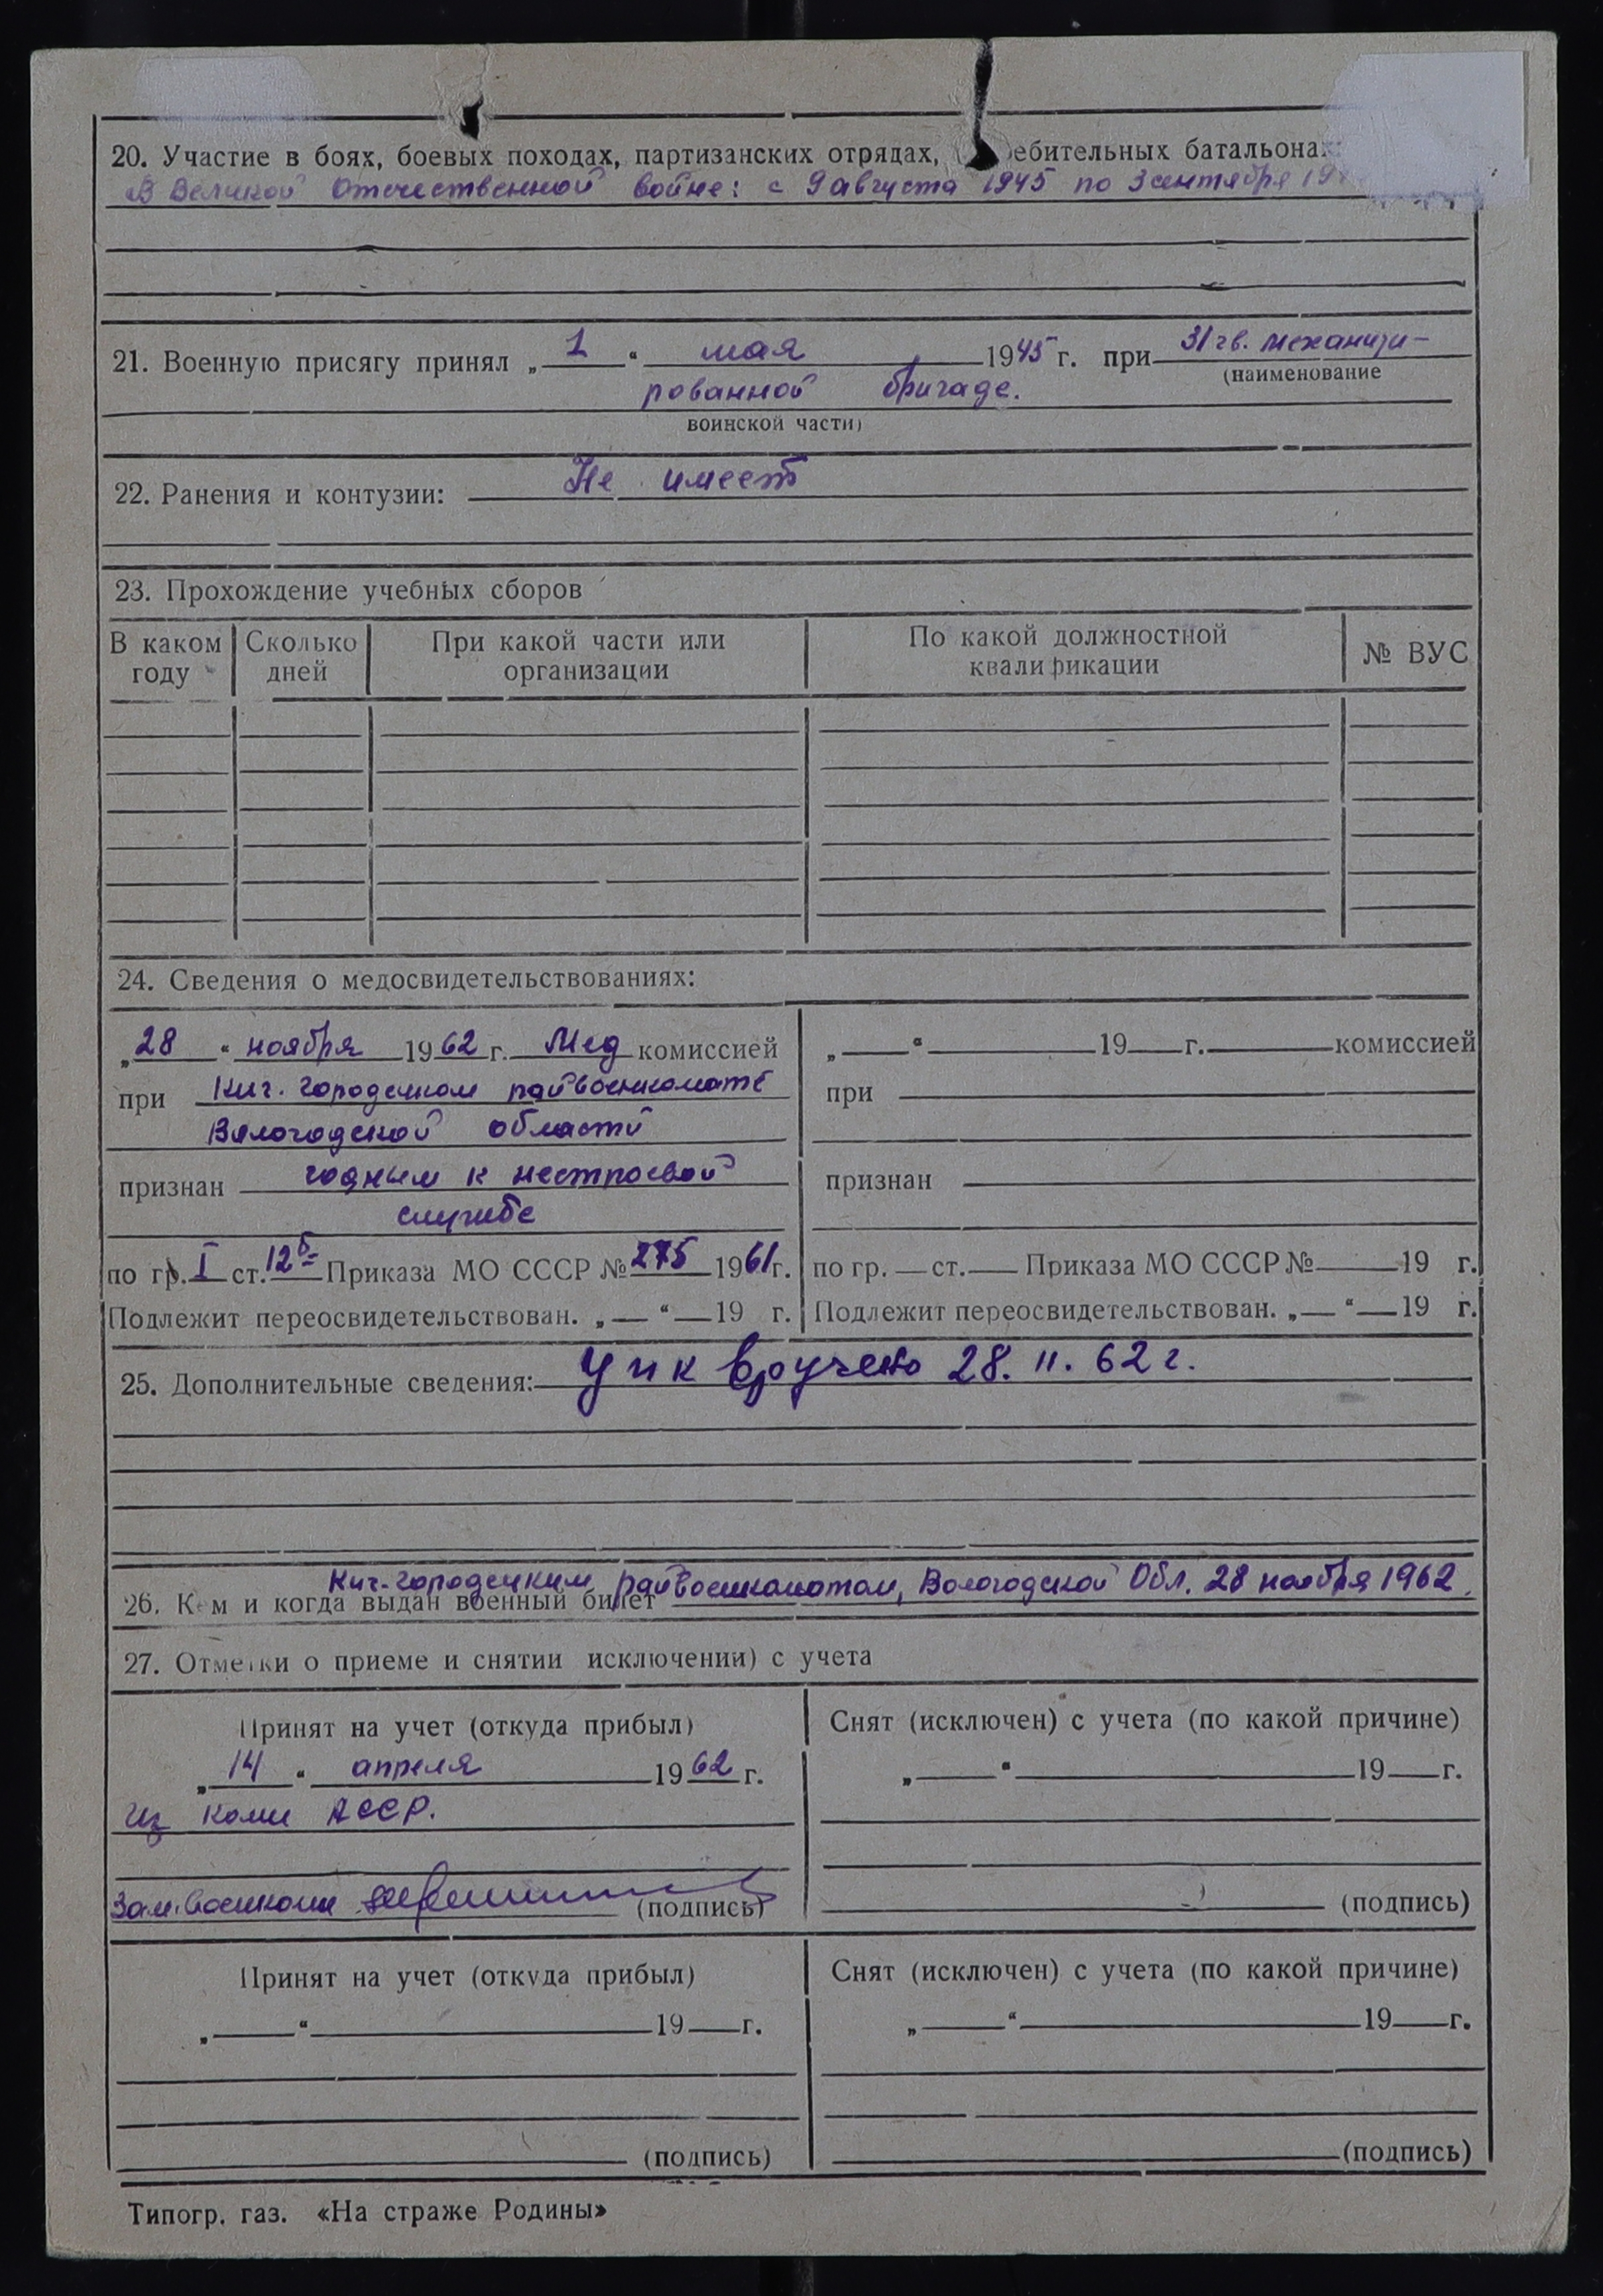 20. Участие в боях, боевых походах, партизанских отрядах, ебительных батальона
В Великой Отечественной войне: с 9 августа 1945 по 3 сентября 19
21. Военную присягу принял „ 1 “ мая 1945 г. при 31 гв. механизи-
(наименование
рованной бригаде.
воинской части)
22. Ранения и контузии: Не имеет
23. Прохождение учебных сборов
В каком году
Сколько дней
При какой части или организации
По какой должностной квалификации
№ ВУС
24. Сведения о медосвидетельствованиях:
„28“ ноября 1962 г. Мед комиссией
при Кич. городецком райвоенкомате
Вологодской области
признан годным к нестроевой
службе
по гр. I ст. 12б Приказа МО СССР № 275 1961 г.
Подлежит переосвидетельствован. „ “ 19 г.
„ “ 19 г. комиссией
при
признан
по гр. ст. Приказа МО СССР № 19 г.
Подлежит переосвидетельствован. „ “ 19 г.
25. Дополнительные сведения: УПК вручено 28. 11. 62 г.
Кич-городецким райвоенкоматом, Вологодской Обл. 28 ноября 1962.
26. Кем и когда выдан военный билет
27. Отметки о приеме и снятии исключении) с учета
Принят на учет (откуда прибыл)
„14“ апреля 1962 г.
из Коми АССР.
Зам. военкома (подпись)
Снят (исключен) с учета (по какой причине)
„ “ 19 г.
(подпись)
Принят на учет (откуда прибыл)
„ “ 19 г.
(подпись)
Снят (исключен) с учета (по какой причине)
„ “ 19 г.
(подпись)
Типогр. газ. «На страже Родины»